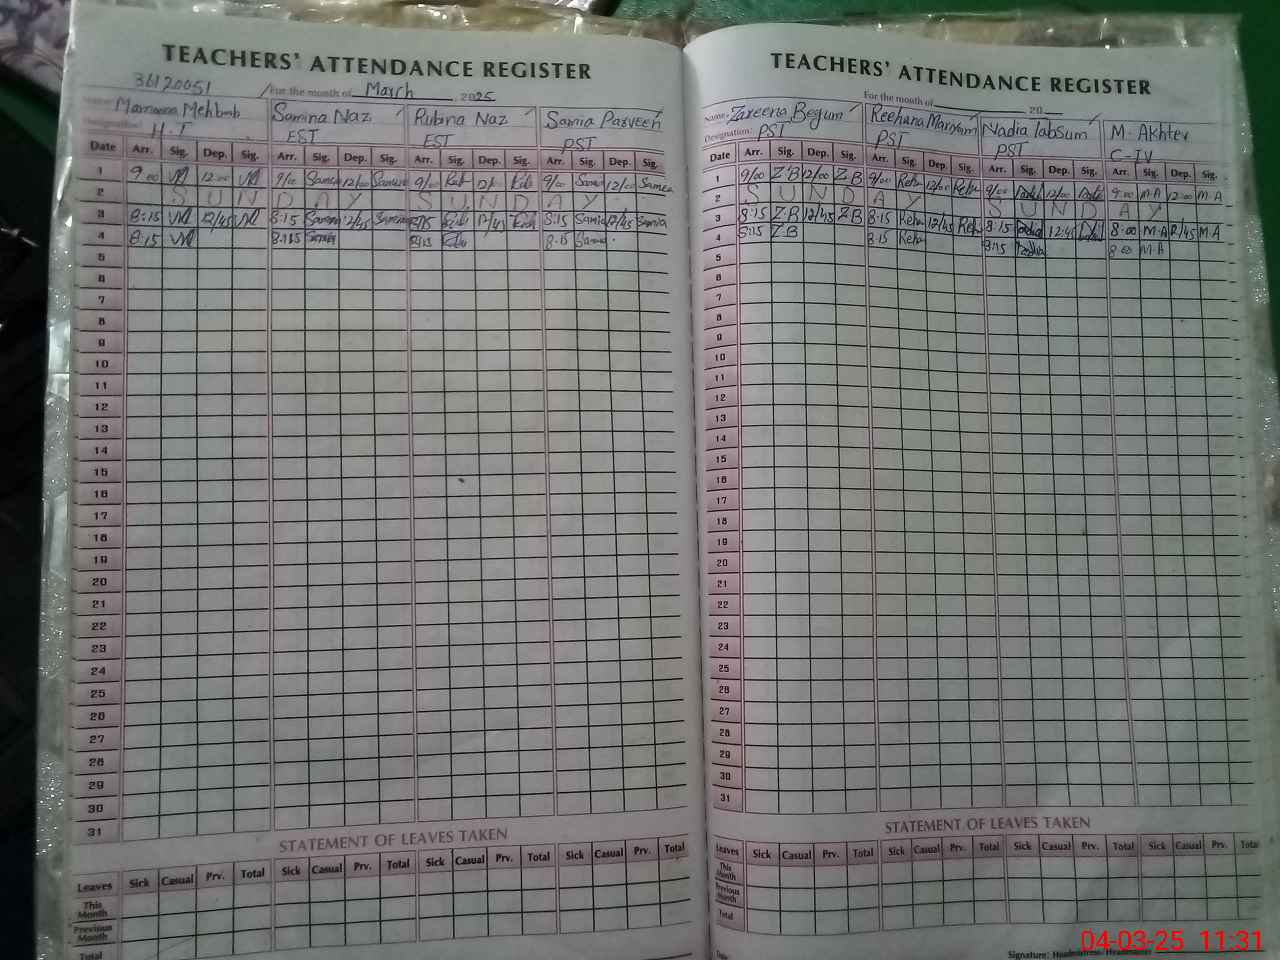 TEACHERS' ATTENDANCE REGISTER
36120051 For the month of March 2025
Name: Mehbub Samina Naz Rubina Naz Samia Parveen
Designation: H.T EST EST PST
Date Arr. Sig. Dep. Sig. Arr. Sig. Dep. Sig. Arr. Sig. Dep. Sig. Arr. Sig. Dep. Sig.
1 9:00 12:00 9/00 12/00 9/00 12/ 9/00 Samia 12/00 Samia
2 SUNDAY SUNDAY
3 8:15 12/45 8:15 12/45 8:15 12/45 8:15 Samia 12/45 Samia
4 8:15 8:15 8:15 8:15 Samia
5
6
7
8
9
10
11
12
13
14
15
16
17
18
19
20
21
22
23
24
25
26
27
28
29
30
31
STATEMENT OF LEAVES TAKEN
Leaves Sick Casual Prv. Total Sick Casual Prv. Total Sick Casual Prv. Total Sick Casual Prv. Total
This Month
Previous Month
Total
TEACHERS' ATTENDANCE REGISTER
For the month of 20
Name: Zareena Begum Reehana Maryam Nadia Tabsum M. Akhter
Designation: PST PST PST C-IV
Date Arr. Sig. Dep. Sig. Arr. Sig. Dep. Sig. Arr. Sig. Dep. Sig. Arr. Sig. Dep. Sig.
1 9/00 Z.B 12/00 Z.B 9/00 Reh 12/00 Reh 9/00 12/00 9:00 M.A 12:00 M.A
2 SUNDAY SUNDAY
3 8:15 Z.B 12/45 Z.B 8:15 Reh 12/45 Reh 8:15 12:45 8:00 M.A 12/45 M.A
4 8:15 Z.B 8:15 Reh 8:15 8:00 M.A
5
6
7
8
9
10
11
12
13
14
15
16
17
18
19
20
21
22
23
24
25
26
27
28
29
30
31
STATEMENT OF LEAVES TAKEN
Leaves Sick Casual Prv. Total Sick Casual Prv. Total Sick Casual Prv. Total Sick Casual Prv. Total
This Month
Previous Month
Total
Signature: Headmistress/Headmaster
04-03-25 11:31